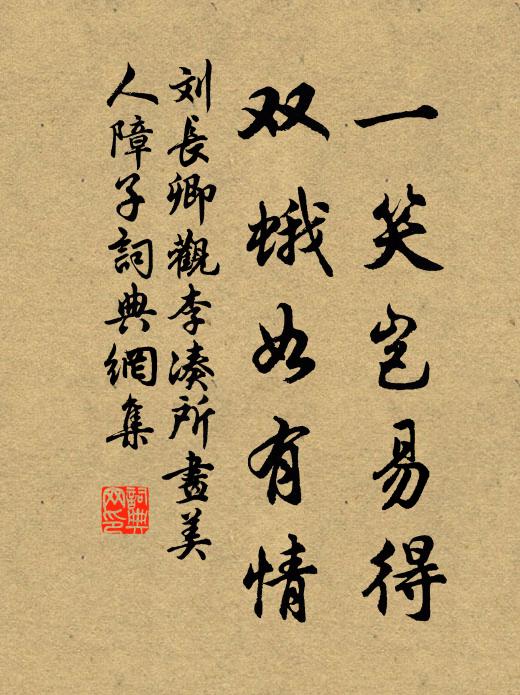 一笑岂易得
双蛾如有情
刘長卿觀李凑所畫美
人障子詞典網集
詞典网印